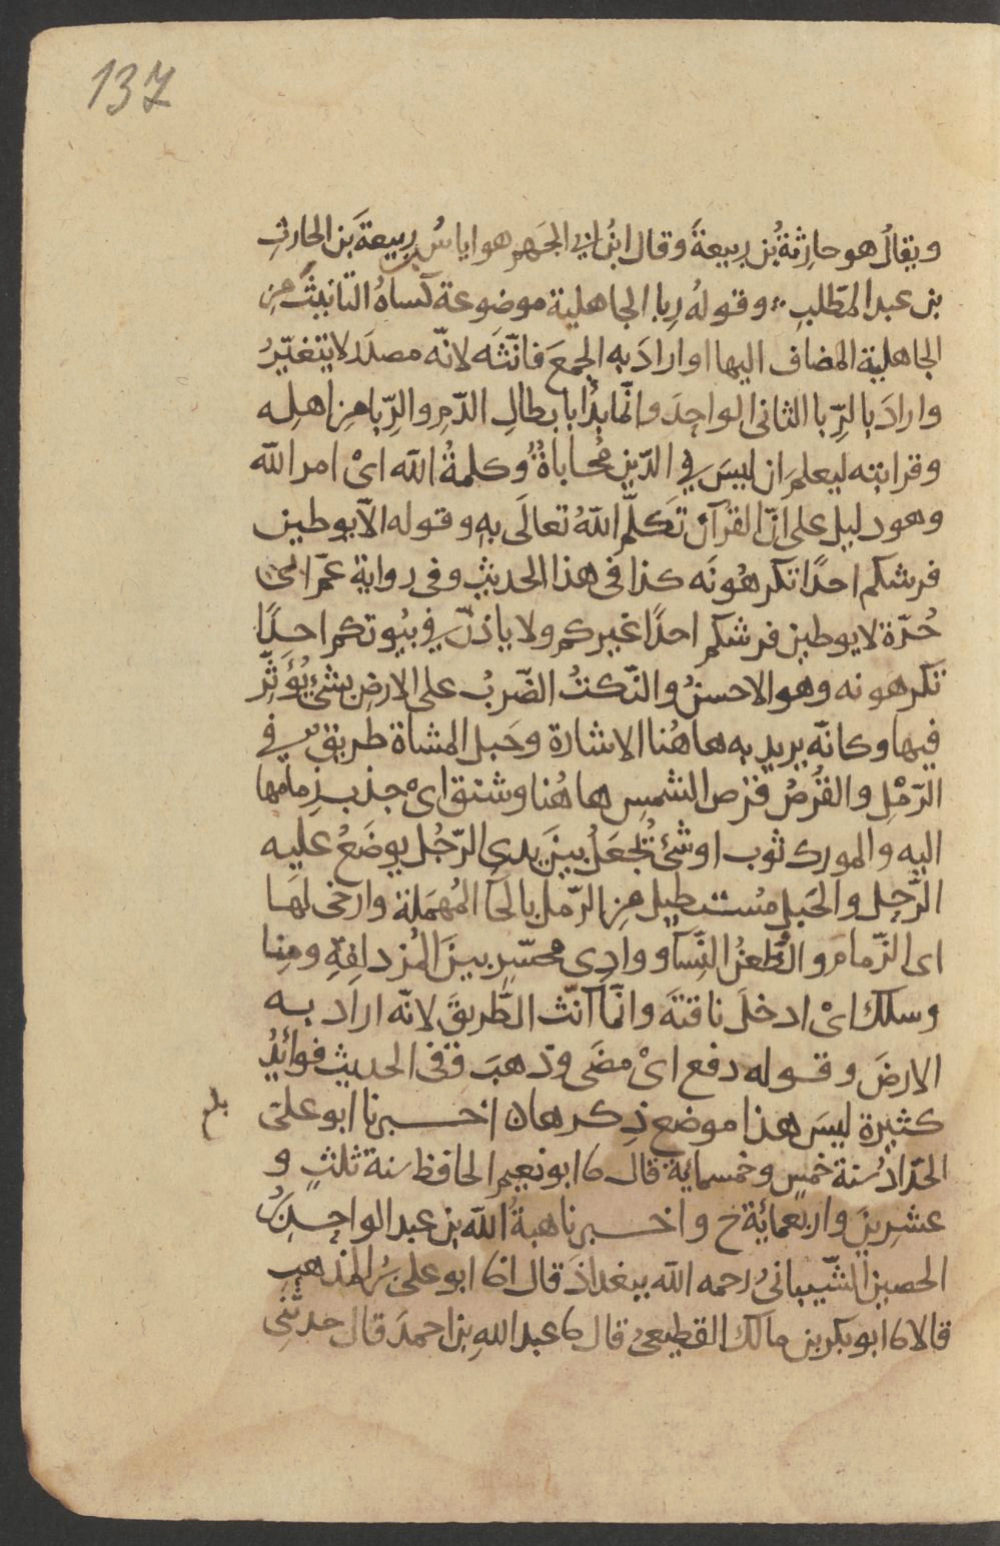 137
ويقالُ هو حارثةُ بُن ربيعةَ وقال ابنُ ابي الجَهم هو اياسُ بن ربيعةَ بَن الحارثِ
بن عبد المطّلبِ وقولهُ رِبا الجاهلية موضوعة كساهُ التانيثُ من
الجاهلية المضاف اليها او ارادَ به الجمعَ فانّثَه لانّه مصدَر لا يتغيّرُ
وارادَ بالرِّبا الثانى الواحِدَ وانّما بدُا بابطالِ الدّمِ والرِّبا مِن اهلِه
وقرابته ليعلمَ ان ليسَ في الدّين مُحاباةُ وكلمةُ الله اىْ امر الله
وهو دليل على انّ القرآن تكلّم اللهُ تعالَى بهِ وقوله الّا يوطين
فرشكم احدًا تكرهُونَه كذا فى هذا الحديثِ وفى رواية عمّ ابى
حُرّة لا يوطين فرشكم احدًا غيركم ولا ياذنّ في بيُوتكم احدًا
تكرهونه وهو الاحسنُ والنّكتُ الضّربُ على الارضِ بشئٍ يُؤثّر
فيها وكانّه يريد به هاهُنا الاشارة وحَبل المشاة طريق في
الرّمْلِ والقُرصُ قرص الشمسِ هاهُنا وشنق اىْ جذب زمامها
اليه والمورك ثوب او شئ يُجعَلُ بينَ يدىِ الرّجُل يوضَعُ عليه
الرَّجِل والحَبل مُستطيل مِن الرّمل بالحآ المُهمَلة وارخى لَها
اى الزّمامَ والظُّعنُ النِّسآ ووادِى محسّرٍ بينَ المُزدلِفةِ ومِنا
وسلك اىْ ادخلَ ناقتَه وانّما آنّث الطَّريقَ لانّه اراد به
الارضَ وقوله دفع اىْ مضَى وذهبَ وفى الحديث فوائدُ
كثيرة ليسَ هذا موضع ذِكرها ن اخبرنا ابو على
بلغ
الحّدّادُ سنة خمسٍ وخمسمايةً قال ثا ابو نعيم الحافظ سنة ثلثٍ و
عشرِينَ واربعمائة ح واخبرنا هبةُ الله بن عبد الواحدِ بنُ
الحصين الشّيبانىُ رحمه الله ببغداذَ قال انا ابو على بنُ المذهبِ
قالا ثا ابو بكر بن مالك القطيعىُ قال ثا عبد اللهِ بن احمدَ قال حدثنِى